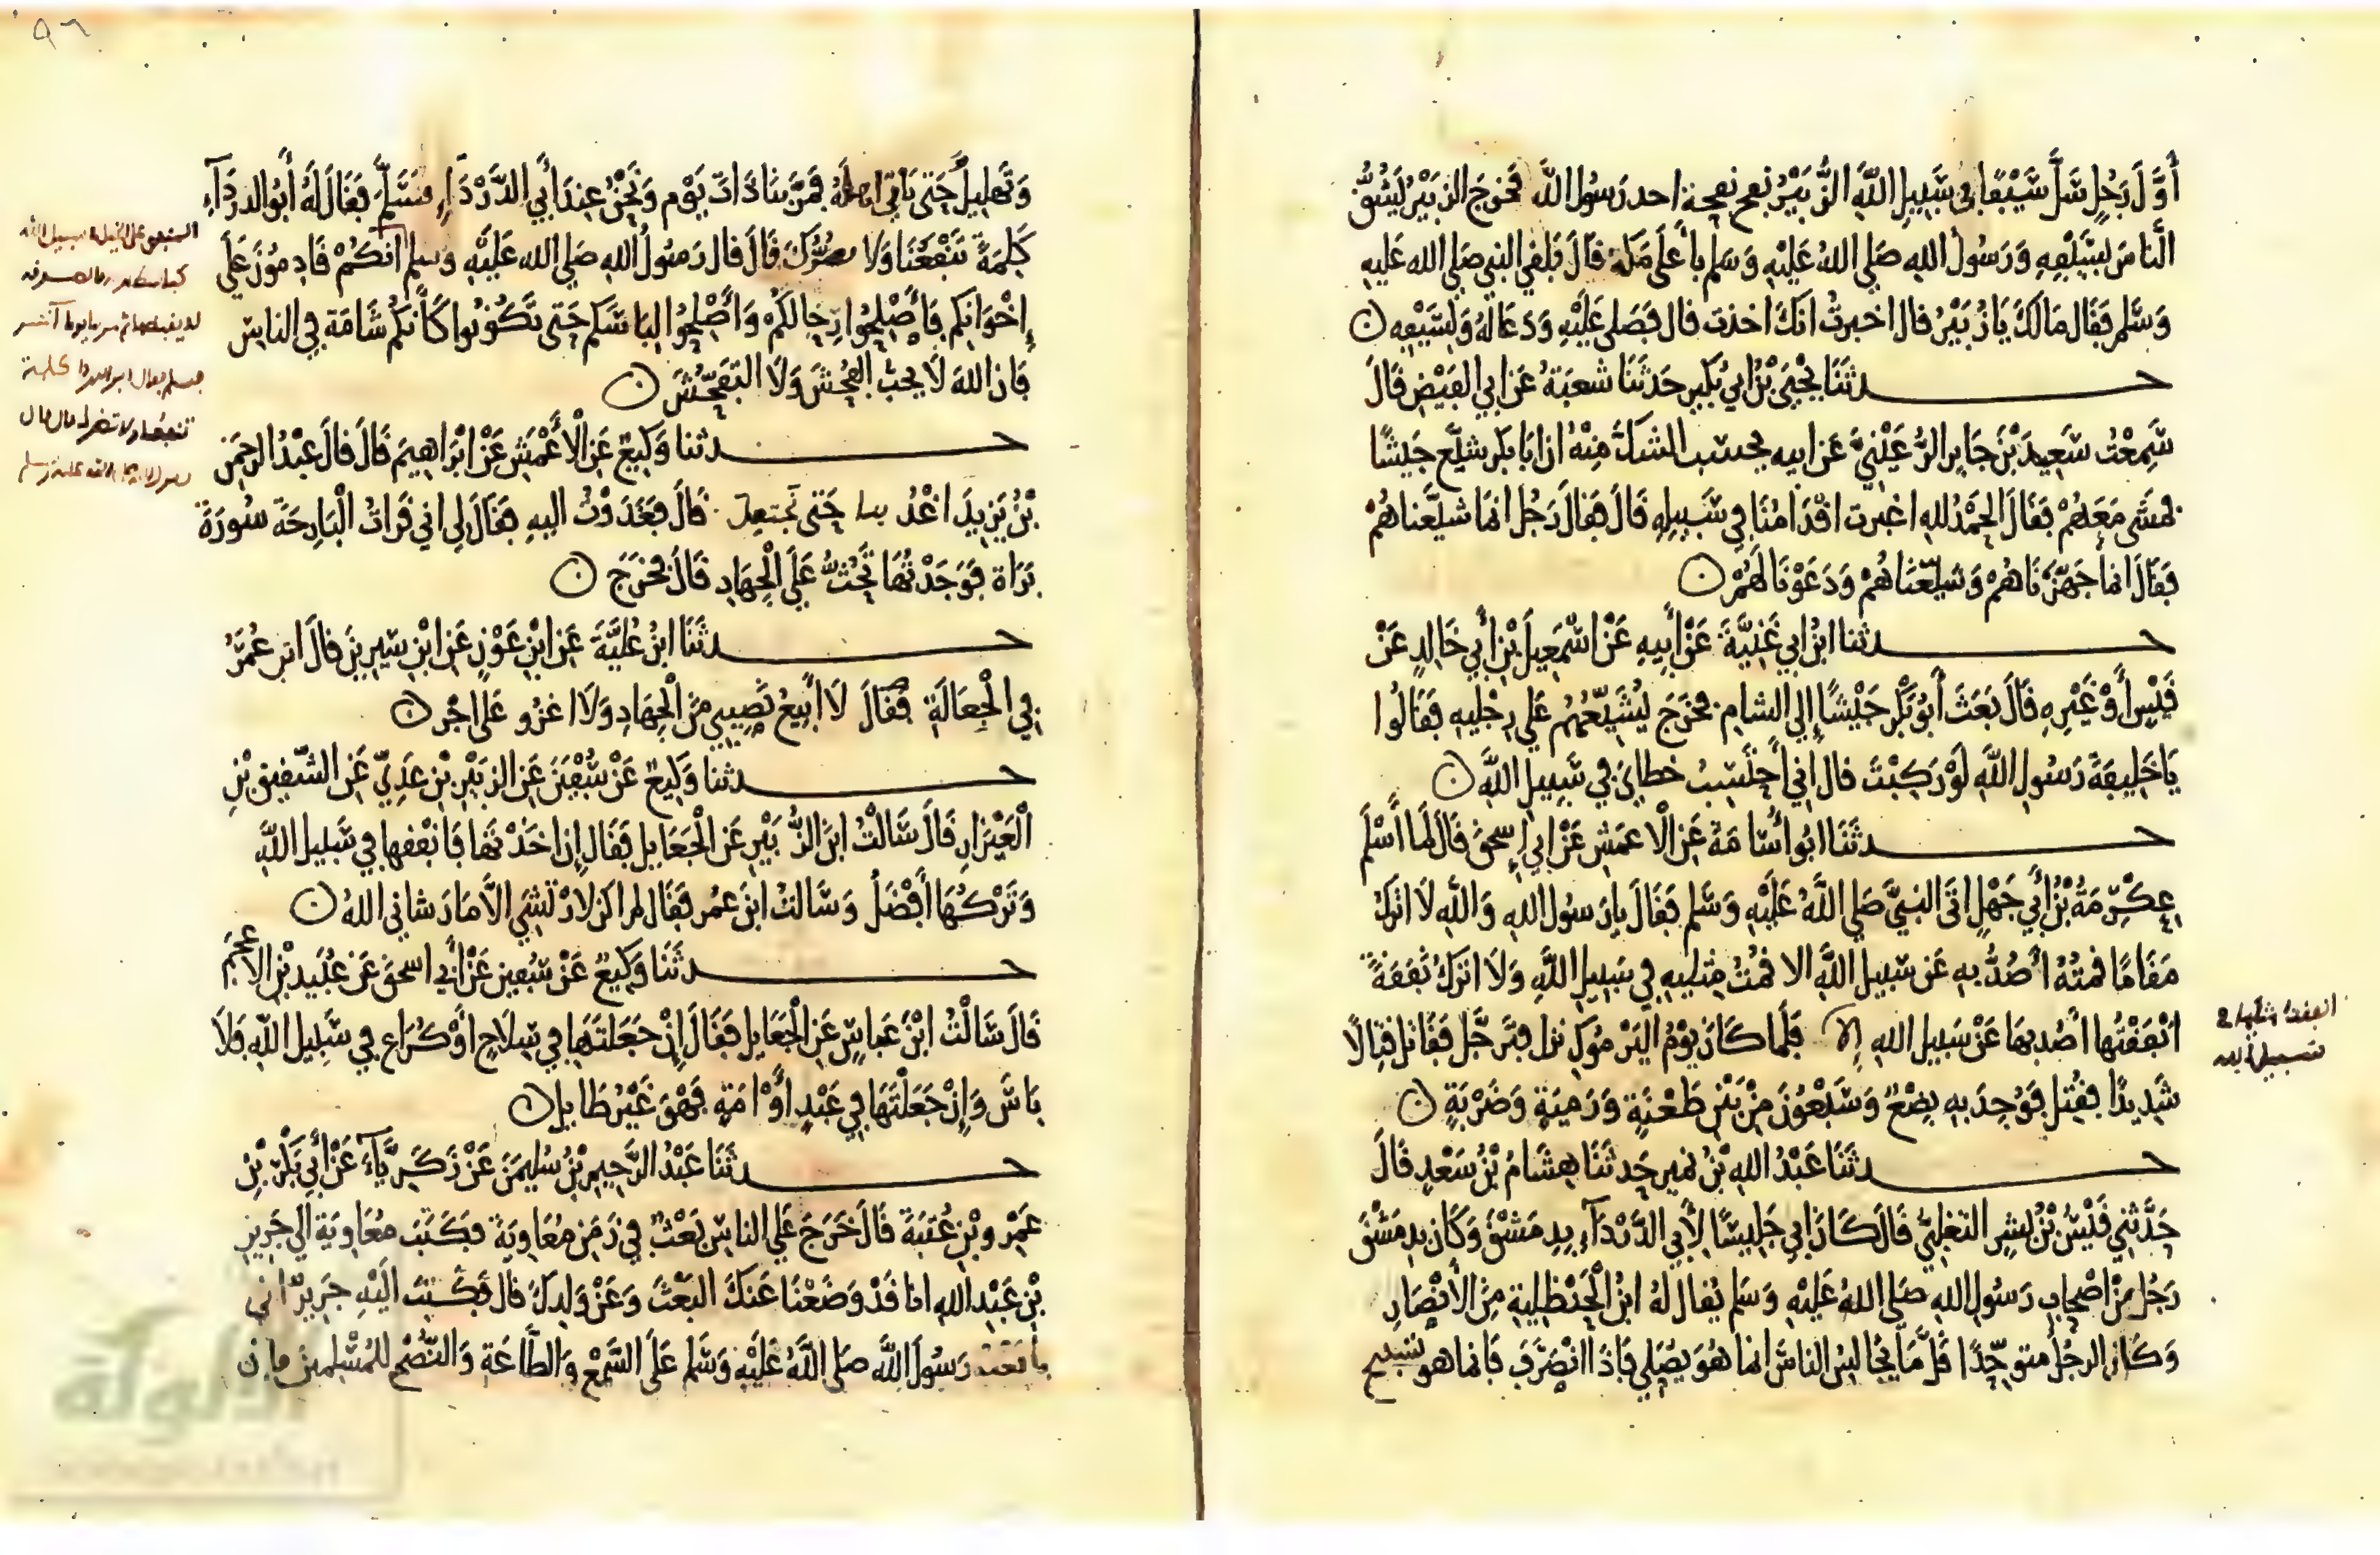 أَوَّلَ رَجُلٍ سَلَّ سَيْفًا في سَبِيلِ اللَّهِ الزُّبَيْرُ نفح نفحة اخذ رَسُولُ اللَّه فَخرَجَ الزبَيْرُ يَشُقُّ
النَّاسَ بِسَيْفِهِ وَرَسُولُ اللهِ صَلى اللهُ عَلَيْهِ وَسَلم بأَعلَى مَكة قالَ فلقي النبي صَلى الله عَليه
وَسَلم فقَال مَا لكَ يَا زُبَيْرُ قال اخبرتُ انكَ اخذت قال فصَلى عَليْهِ وَدَعَا لهُ وَلِسَيْفِهِ
حدثَنَا يَحْيَى بْنُ ابي بُكيرٍ حَدثَنَا شعبَةُ عَن ابي الفَيْضِ قَالَ
سَمِعْتُ سَعِيدَ بْنَ جَابِر الرُّعَيْنيَّ عَن ابيه يحسَب الشكُّ مِنْهُ ان ابَا بَكر شيَّع جَيشًا
فمَشَى مَعَهُمْ فقَالَ الحَمْدُ للهِ اغبرت اقْدَامُنَا فِي سَبِيلِهِ قَالَ فقَالَ رَجُل انمَا شيَّعنَاهُمْ
فقَالَ انما جَهّزنَاهُمْ وَشيّعْنَاهُمْ وَدَعَوْنَا لَهُمْ
حدثنا ابنُ ابي غَنِيَّةَ عَنْ أبِيهِ عَنْ اسْمعِيلَ بْنِ أبي خَالِدٍ عَنْ
قَيْسٍ أَوْ غَيْرِهِ قَالَ بَعَثَ أَبُو بَكْر جَيْشًا إلى الشام فخرَجَ يُشَيّعُهُمْ عَلى رِجْلَيهِ فقَالُوا
يَا خَلِيفَةَ رَسُولِ اللَّهِ لَوْ رَكِبْتَ قال اني أحْتَسِبُ خطايَ في سَبِيلِ اللَّهِ
حدثَنَا ابُو أُسَامَةَ عَن الاعمَشِ عَنْ ابي إسحق قَالَ لَما أسْلَمَ
عِكْرِمَةُ بْنُ أبي جَهْلٍ اتَى النبيَّ صَلى اللَّهُ عَلَيْهِ وَسَلم فقَالَ يا رَسُولَ اللهِ وَاللَّهِ لَا اترُكُ
مَقَامًا قمتُهُ أَصُدُّ بهِ عَن سَبِيلِ اللَّهِ الا قمْتُ مِثلَيهِ فِي سَبِيلِ اللَّهِ وَلَا اتركُ نَفَقَةً
انْفَقتُهَا أصُد بهَا عَنْ سَبِيلِ اللهِ إلا فَلَما كَانَ يَوْمُ اليَرْمُوكِ نزل فتَرَجّل فقَاتَل قِتَالًا
انفقت مثليها في
سبيل الله
شَدِيدًا فقُتِلَ فوُجِدَ بهِ بِضْعٌ وَسَبْعُونَ مِنْ بَيْنِ طَعْنَةٍ وَرَميَةٍ وَضَرْبَةٍ
حدثَنَا عَبْدُ اللهِ بْنُ نمير حَدثَنَا هِشَامُ بْنُ سَعْدٍ قَالَ
حَدَّثني قَيْسُ بْنُ بِشر التغلِبيُّ قَالَ كَانَ ابي جَلِيسًا لأَبي الدَّرْدَآءِ بِدِمَشْقَ وَكَان بدِمَشْقَ
رَجُل مِنْ اصْحاب رَسُولِ اللهِ صَلى اللهُ عَلَيْهِ وَسَلم يُقَال لهُ ابنُ الحَنظلِيةِ مِنَ الأَنْصَارِ
وَكَانَ الرجُلُ متوحّدًا قَلَّ مَا يُجَالِسُ الناسَ انما هُوَ يُصَلي فاذَا انْصَرَفَ فَانما هو تسبيح
وَتَهلِيلٌ حَتى يَاتي اهلهُ فمَرَّ بنَا ذاتَ يَوْم وَنَحْنُ عِندَ أبي الدَّرْدَآءِ فَسَلَّمَ فقَالَ لَهُ أَبُو الدردَآءِ
كَلِمَةً تَنْفَعُنَا وَلا تضُرُّكَ قَالَ قال رَسُولُ اللهِ صَلى الله عَلَيْهِ وَسلم انكُمْ قَادِمُونَ عَلَى
إخْوَانِكم فَأَصْلِحُوا رِحَالكُمْ وَأَصْلِحُوا لِبَاسَكم حَتى تَكُونُوا كَأَنكمْ شَامَة فِي الناسِ
فَان اللهَ لَا يحبُّ الفُحْشَ وَلَا التَفَحُّشَ
المنفق على الخيل في سبيل الله
لا يقبضها ثم مر بنا يوما آخر
فسلم فقال ابو الدردا كلمة
تنفعنا ولا تضرك قال قال
رسول الله صلى الله عليه وسلم
حدثنا وَكِيعٌ عَن الْأَعْمَشِ عَنْ ابْرَاهِيمَ قَالَ قالَ عَبْدُ الرحمَنِ
بْنُ يَزِيدَ اغْدُ بنا حَتى نجتعل قَالَ فغَدَوْتُ اليهِ فقَالَ لِي اني قَرَأتُ الْبَارِحَةَ سُورَةَ
بَرَاة فوَجَدْتُهَا تَحُثُّ عَلَى الْجِهَادِ قَالَ فخرَجَ
حدثَنَا ابنُ عُلَيَّةَ عَن ابْنِ عَوْنٍ عَن ابْنِ سِيرِينَ قالَ ابن عُمَرَ
فِي الْجِعَالَةِ فقَالَ لَا أبِيعُ نَصِيبي مِنَ الْجِهَادِ وَلَا اغزُو عَلَى اجْر
حدثنا وَكِيعٌ عَنْ سُفْيَنَ عَن الزبَيْرِ بْنِ عَدِيّ عَن الشّقِيقِ بْنِ
الْعَيْزَارِ قَالَ سَالْتُ ابنَ الزُّبَيْرِ عَن الْجَعَايل فقَال إن اخَذْتهَا فَانْفِقها في سَبِيلِ اللَّهِ
وَتَرْكُهَا أفْضَلُ وَسَالتُ ابنَ عمَر فقَال لم اكن لارْتَشِي الَّا مَا رَشَاني اللهُ
حدثَنَا وَكِيعٌ عَنْ سُفين عَنْ أَبي اسحق عَنْ عُبَيد بْنِ الأعجم
قَالَ سَالْتُ ابْنَ عَباسٍ عَن الْجَعَايل فقَالَ إنْ جَعَلتَهَا فِي سِلَاحٍ أَوْ كُرَاعٍ فِي سَبِيلِ اللَّهِ فَلَا
بَاسَ وَإِنْ جَعَلْتَهَا فِي عَبْدٍ أَوْ امَةٍ فَهْوَ غَيْرُ طَايِل
حدثَنَا عَبْدُ الرَّحِيمِ بْنُ سُلَيمَنَ عَنْ زَكَرِيَّآءَ عَنْ أَبِي بَكْرِ بْنِ
عَمْرِو بْنِ عُتبَةَ قَالَ خَرَجَ عَلَى الناسِ بَعْثٌ فِي زَمَنِ مُعَاوِيَةَ فكَتَبَ مُعَاوِيَة الَى جَرِيرِ
بْنِ عَبْد اللهِ انا قَدْ وَضَعْنَا عَنكَ البَعْثَ وَعَنْ وَلَدِكَ قال فكَتَبَ الَيْهِ جَرِيرٌ اني
بايعت رَسُولَ اللَّه صَلى اللَّهُ عَلَيْهِ وَسَلم عَلَى السَّمْعِ وَالطَّاعَةِ وَالنُّصْحِ للمُسْلِمِينَ فان
الألوكة